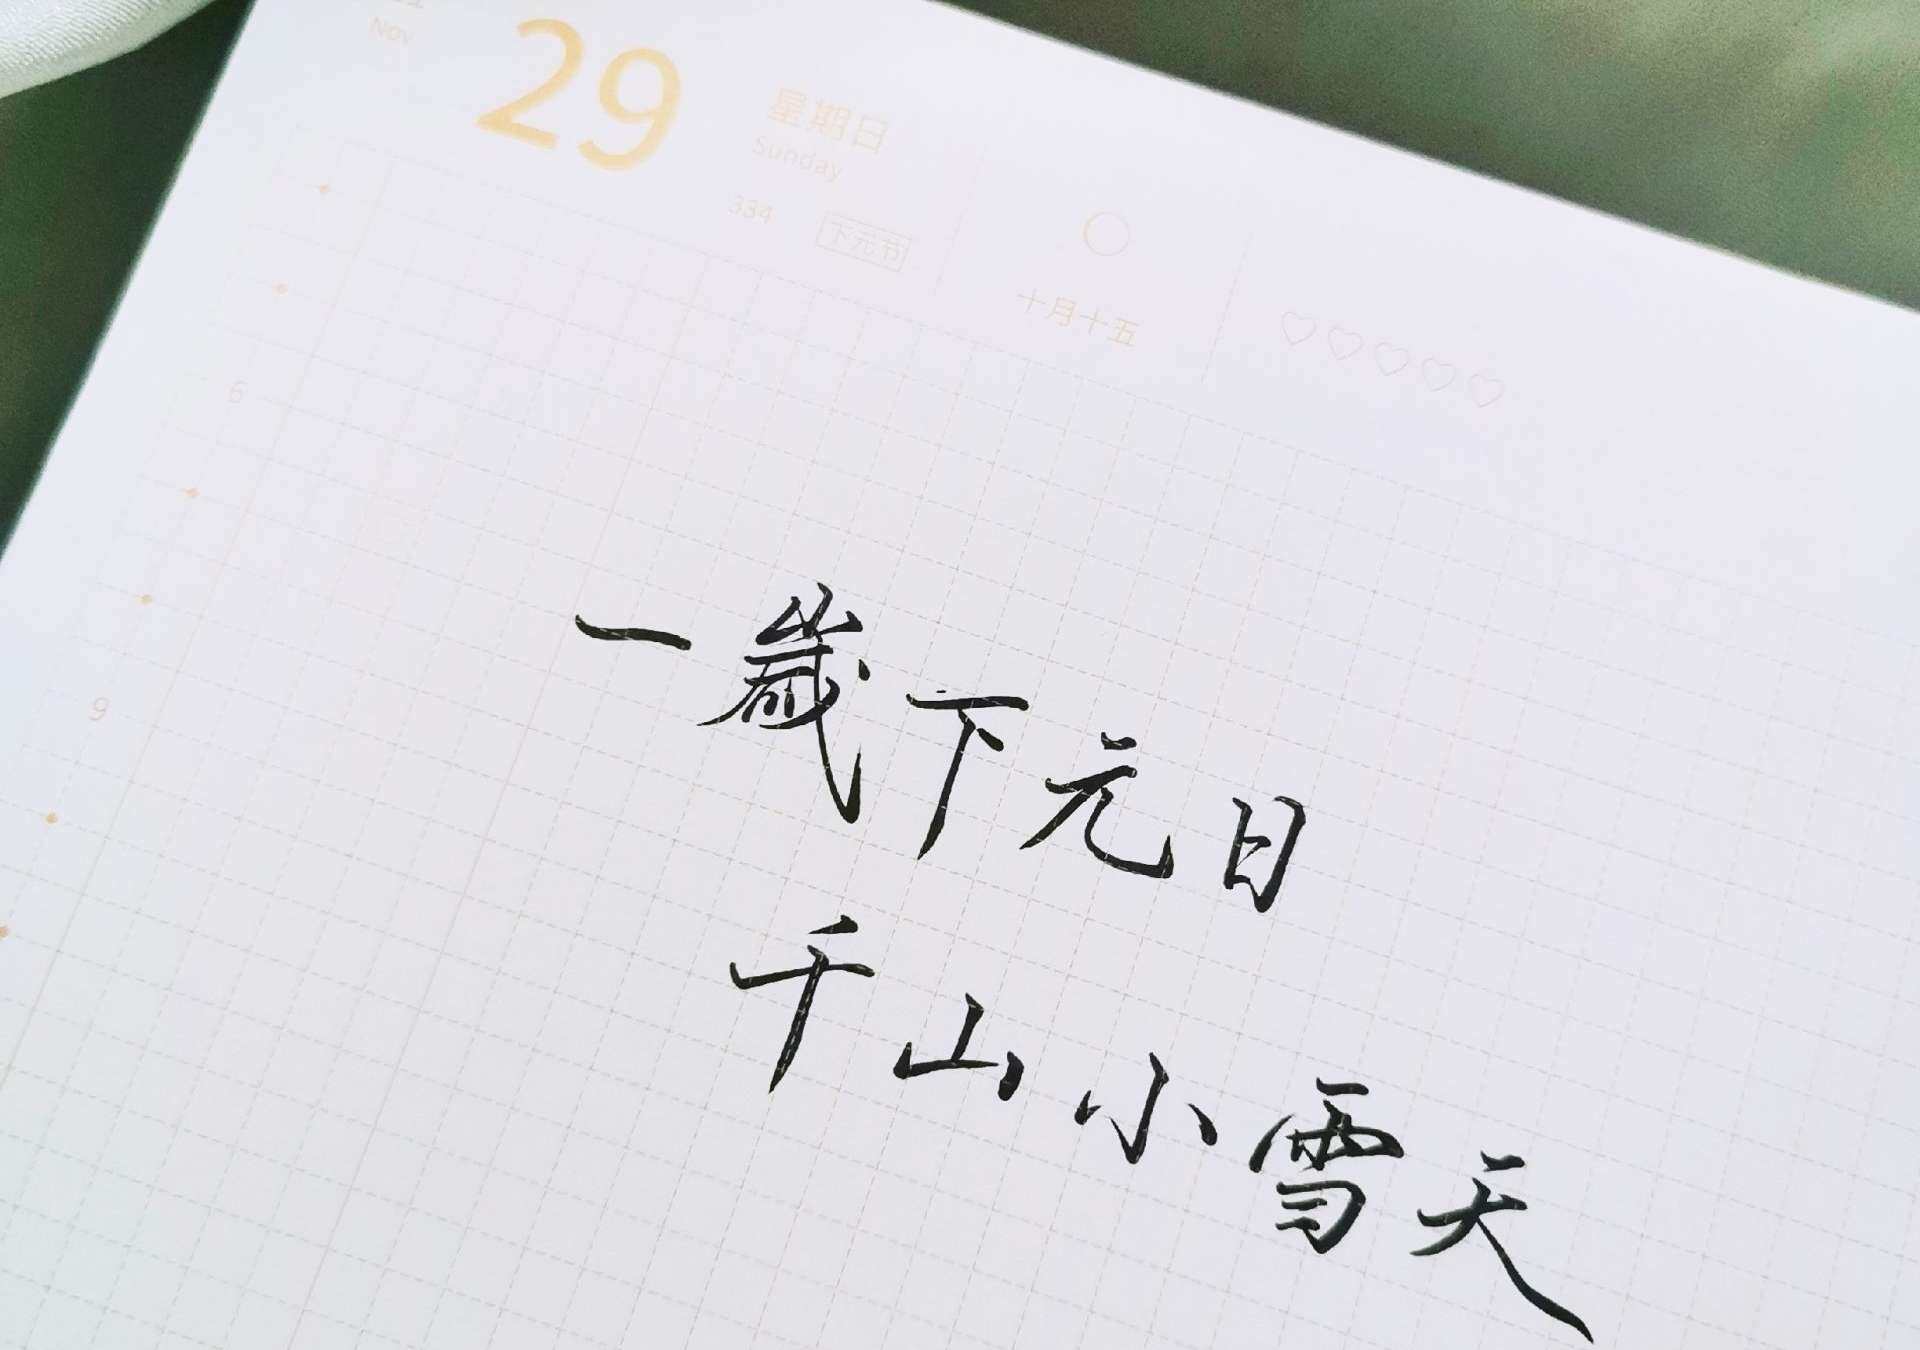 Nov
29
星期日
Sunday
334
下元节
十月十五
6
9
一歲下元日
千山小雪天